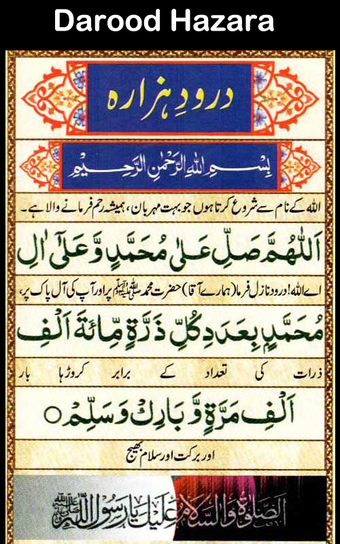 Darood Hazara
درودِ ہزارہ
بِسْمِ اللهِ الرَّحْمٰنِ الرَّحِيْمِ
اللہ کے نام سے شروع کرتا ہوں جو بہت مہربان، ہمیشہ رحم فرمانے والا ہے۔
اَللّٰهُمَّ صَلِّ عَلٰى مُحَمَّدٍ وَّعَلٰٓى اٰلِ
اے اللہ! درود نازل فرما (ہمارے آقا) حضرت محمد ﷺ پر اور آپ کی آل پاک پر،
مُحَمَّدٍۢ بِعَدَدِ كُلِّ ذَرَّةٍ مِّائَةَ اَلْفِ
ذرات کی تعداد کے برابر کروڑہا بار
اَلْفِ مَرَّةٍ وَّبَارِكْ وَسَلِّمْ ○
اور برکت اور سلام بھیج
الصَّلٰوةُ وَالسَّلَامُ عَلَيْكَ يَا رَسُوْلَ اللهِ ﷺ